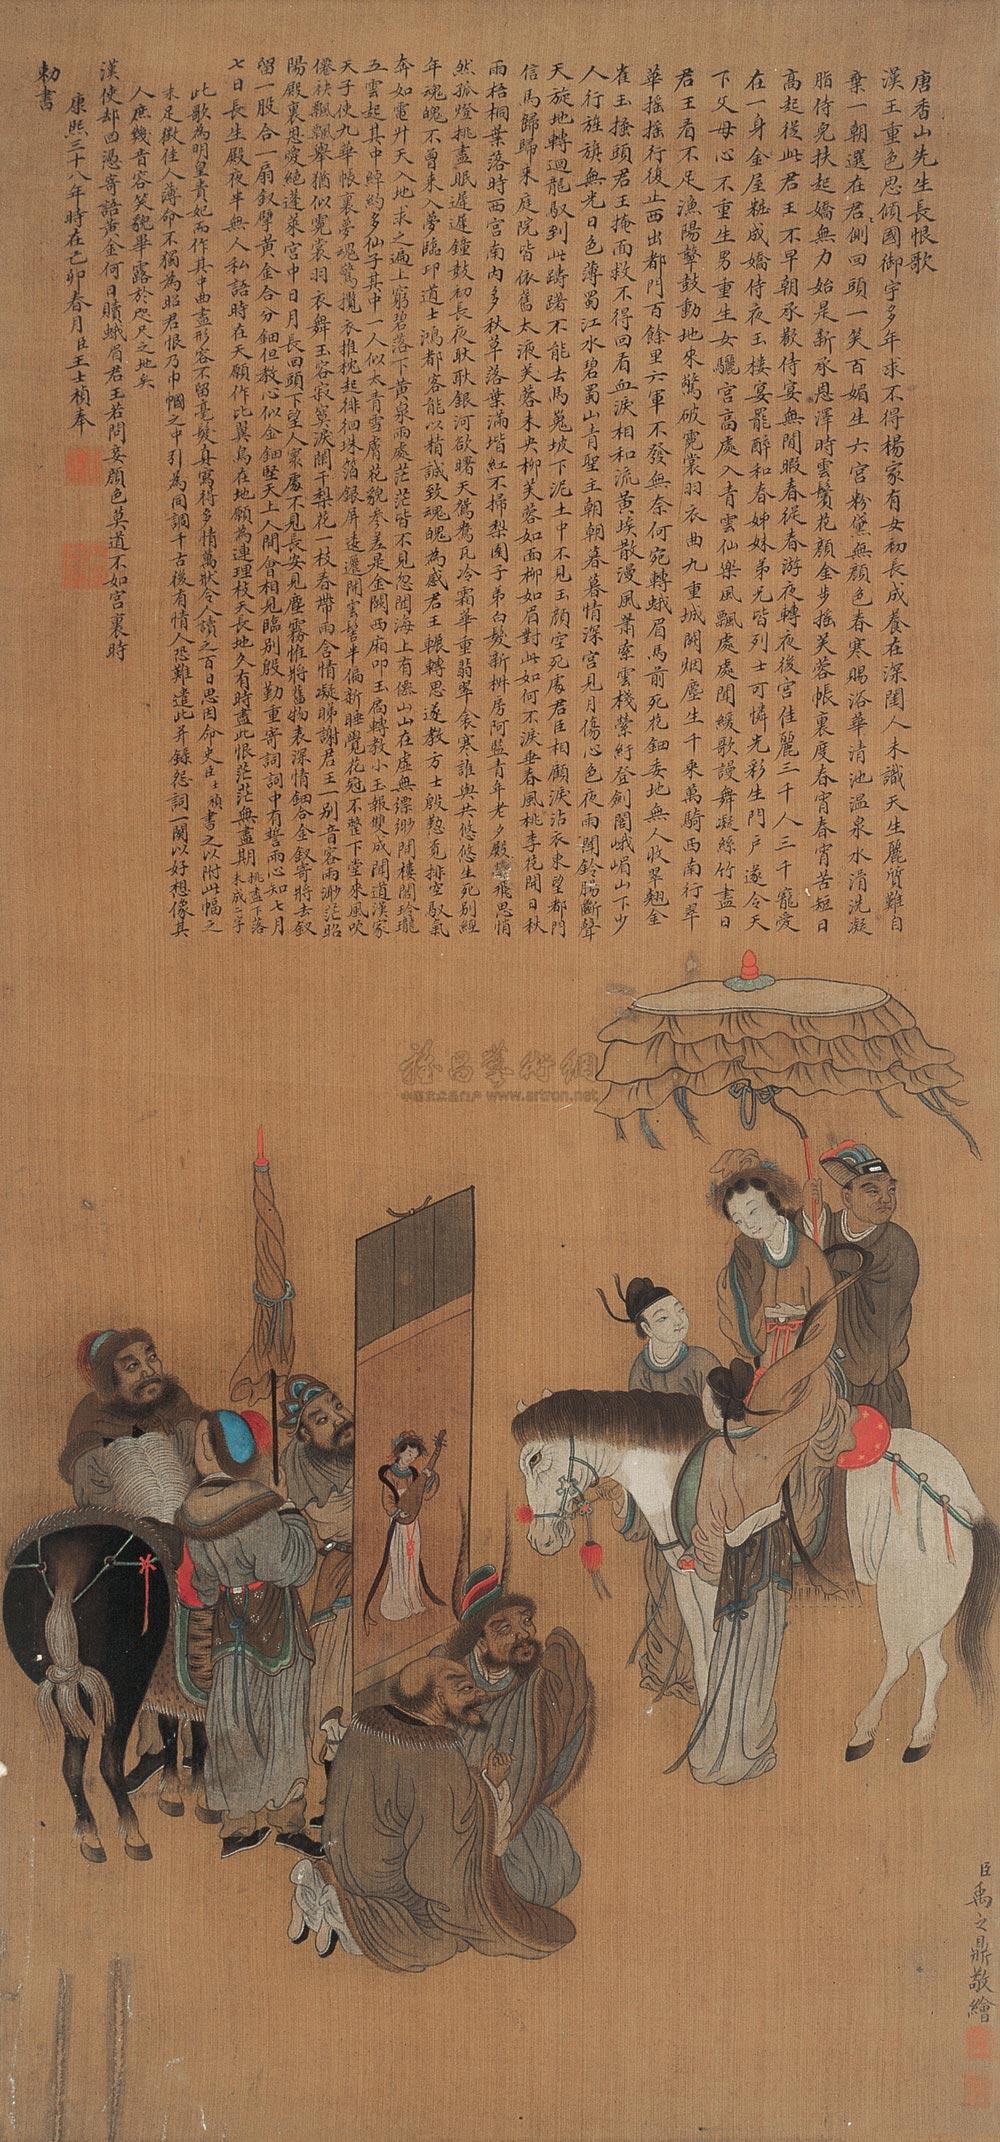 唐香山先生長恨歌
漢王重色思傾國御宇多年求不得楊家有女初長成養在深閨人未識天生麗質難自
棄一朝選在君側回頭一笑百媚生六宮粉黛無顏色春寒賜浴華清池溫泉水滑洗凝
脂侍兒扶起嬌無力始是新承恩澤時雲鬢花顏金步搖芙蓉帳裏度春宵春宵苦短日
高起從此君王不早朝承歡侍宴無閒暇春從春游夜轉夜後宮佳麗三千人三千寵愛
在一身金屋粧成嬌侍夜玉樓宴罷醉和春姊妹弟兄皆列士可憐光彩生門戶遂令天
下父母心不重生男重生女驪宮高處入青雲仙樂風飄處處聞緩歌謾舞凝絲竹盡日
君王看不足漁陽鼙鼓動地來驚破霓裳羽衣曲九重城闕烟塵生千乘萬騎西南行翠
華搖搖行復止西出都門百餘里六軍不發無奈何宛轉蛾眉馬前死花鈿委地無人收翠翹金
雀玉搔頭君王掩面救不得回看血淚相和流黃埃散漫風蕭索雲棧縈紆登劍閣峨嵋山下少
人行旌旗無光日色薄蜀江水碧蜀山青聖主朝朝暮暮情深宮見月傷心色夜雨聞鈴腸斷聲
天旋地轉迴龍馭到此躊躇不能去馬嵬坡下泥土中不見玉顏空死處君臣相顧淚沾衣東望都門
信馬歸歸來庭院皆依舊太液芙蓉未央柳芙蓉如面柳如眉對此如何不淚垂春風桃李花開日秋
雨梧桐葉落時西宮南內多秋草落葉滿堦紅不掃梨園子弟白髮新椒房阿監青年老夕殿螢飛思悄
然孤燈挑盡眠遲遲鐘鼓初長夜耿耿銀河欲曙天鴛鴦瓦冷霜華重翡翠衾寒誰與共悠悠生死別經
年魂魄不曾來入夢臨邛道士鴻都客能以精誠致魂魄為感君王輾轉思遂教方士殷懃覓排空馭氣
奔如電升天入地求之遍上窮碧落下黃泉兩處茫茫皆不見忽聞海上有僊山山在虛無縹緲間樓閣玲瓏
五雲起其中綽約多仙子其中一人似太真雪膚花貌參差是金闕西廂叩玉扃轉教小玉報雙成聞道漢家
天子使九華帳裏夢魂驚攬衣推枕起徘徊珠箔銀屏迤邐開雲髻半偏新睡覺花冠不整下堂來風吹
僊袂飄飄舉猶似霓裳羽衣舞玉容寂寞淚闌干梨花一枝春帶雨含情凝睇謝君王一別音容兩渺茫昭
陽殿裏恩愛絕蓬萊宮中日月長回頭下望人寰處不見長安見塵霧惟將舊物表深情鈿合金釵寄將去釵
留一股合一扇釵擘黃金合分鈿但教心似金鈿堅天上人間會相見臨別殷勤重寄詞詞中有誓兩心知七月
七日長生殿夜半無人私語時在天願作比翼鳥在地願為連理枝天長地久有時盡此恨茫茫無盡期 挑盡下落
未成二字
此歌為明皇貴妃而作其中曲盡形容不留毫髮身寫得多情萬狀令人讀之百日思因命史臣士禎書之以附此幅之
末足徵佳人薄命不獨為昭君恨乃巾幗之中引為同調千古後有情人恐難遣此并錄怨詞一闋以好想像其
人庶幾昔容笑貌畢露於咫尺之地矣
漢使却回憑寄語黃金何日贖蛾眉君王若問妾顏色莫道不如宮裏時
康熙三十八年時在己卯春月臣王士禎奉
勅書
臣禹之鼎敬繪
www.artron.net